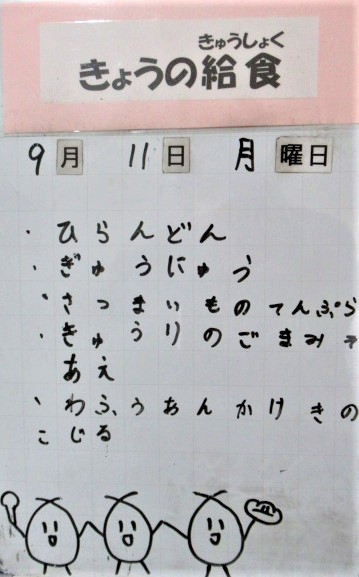 きゅうしょく
きょうの給食
9月 11日 月曜日
・ひらんどん
・ぎゅうにゅう
・さつまいものてんぷら
・きゅうりのごまみそ
あえ
・わふうおんかけきの
こじる